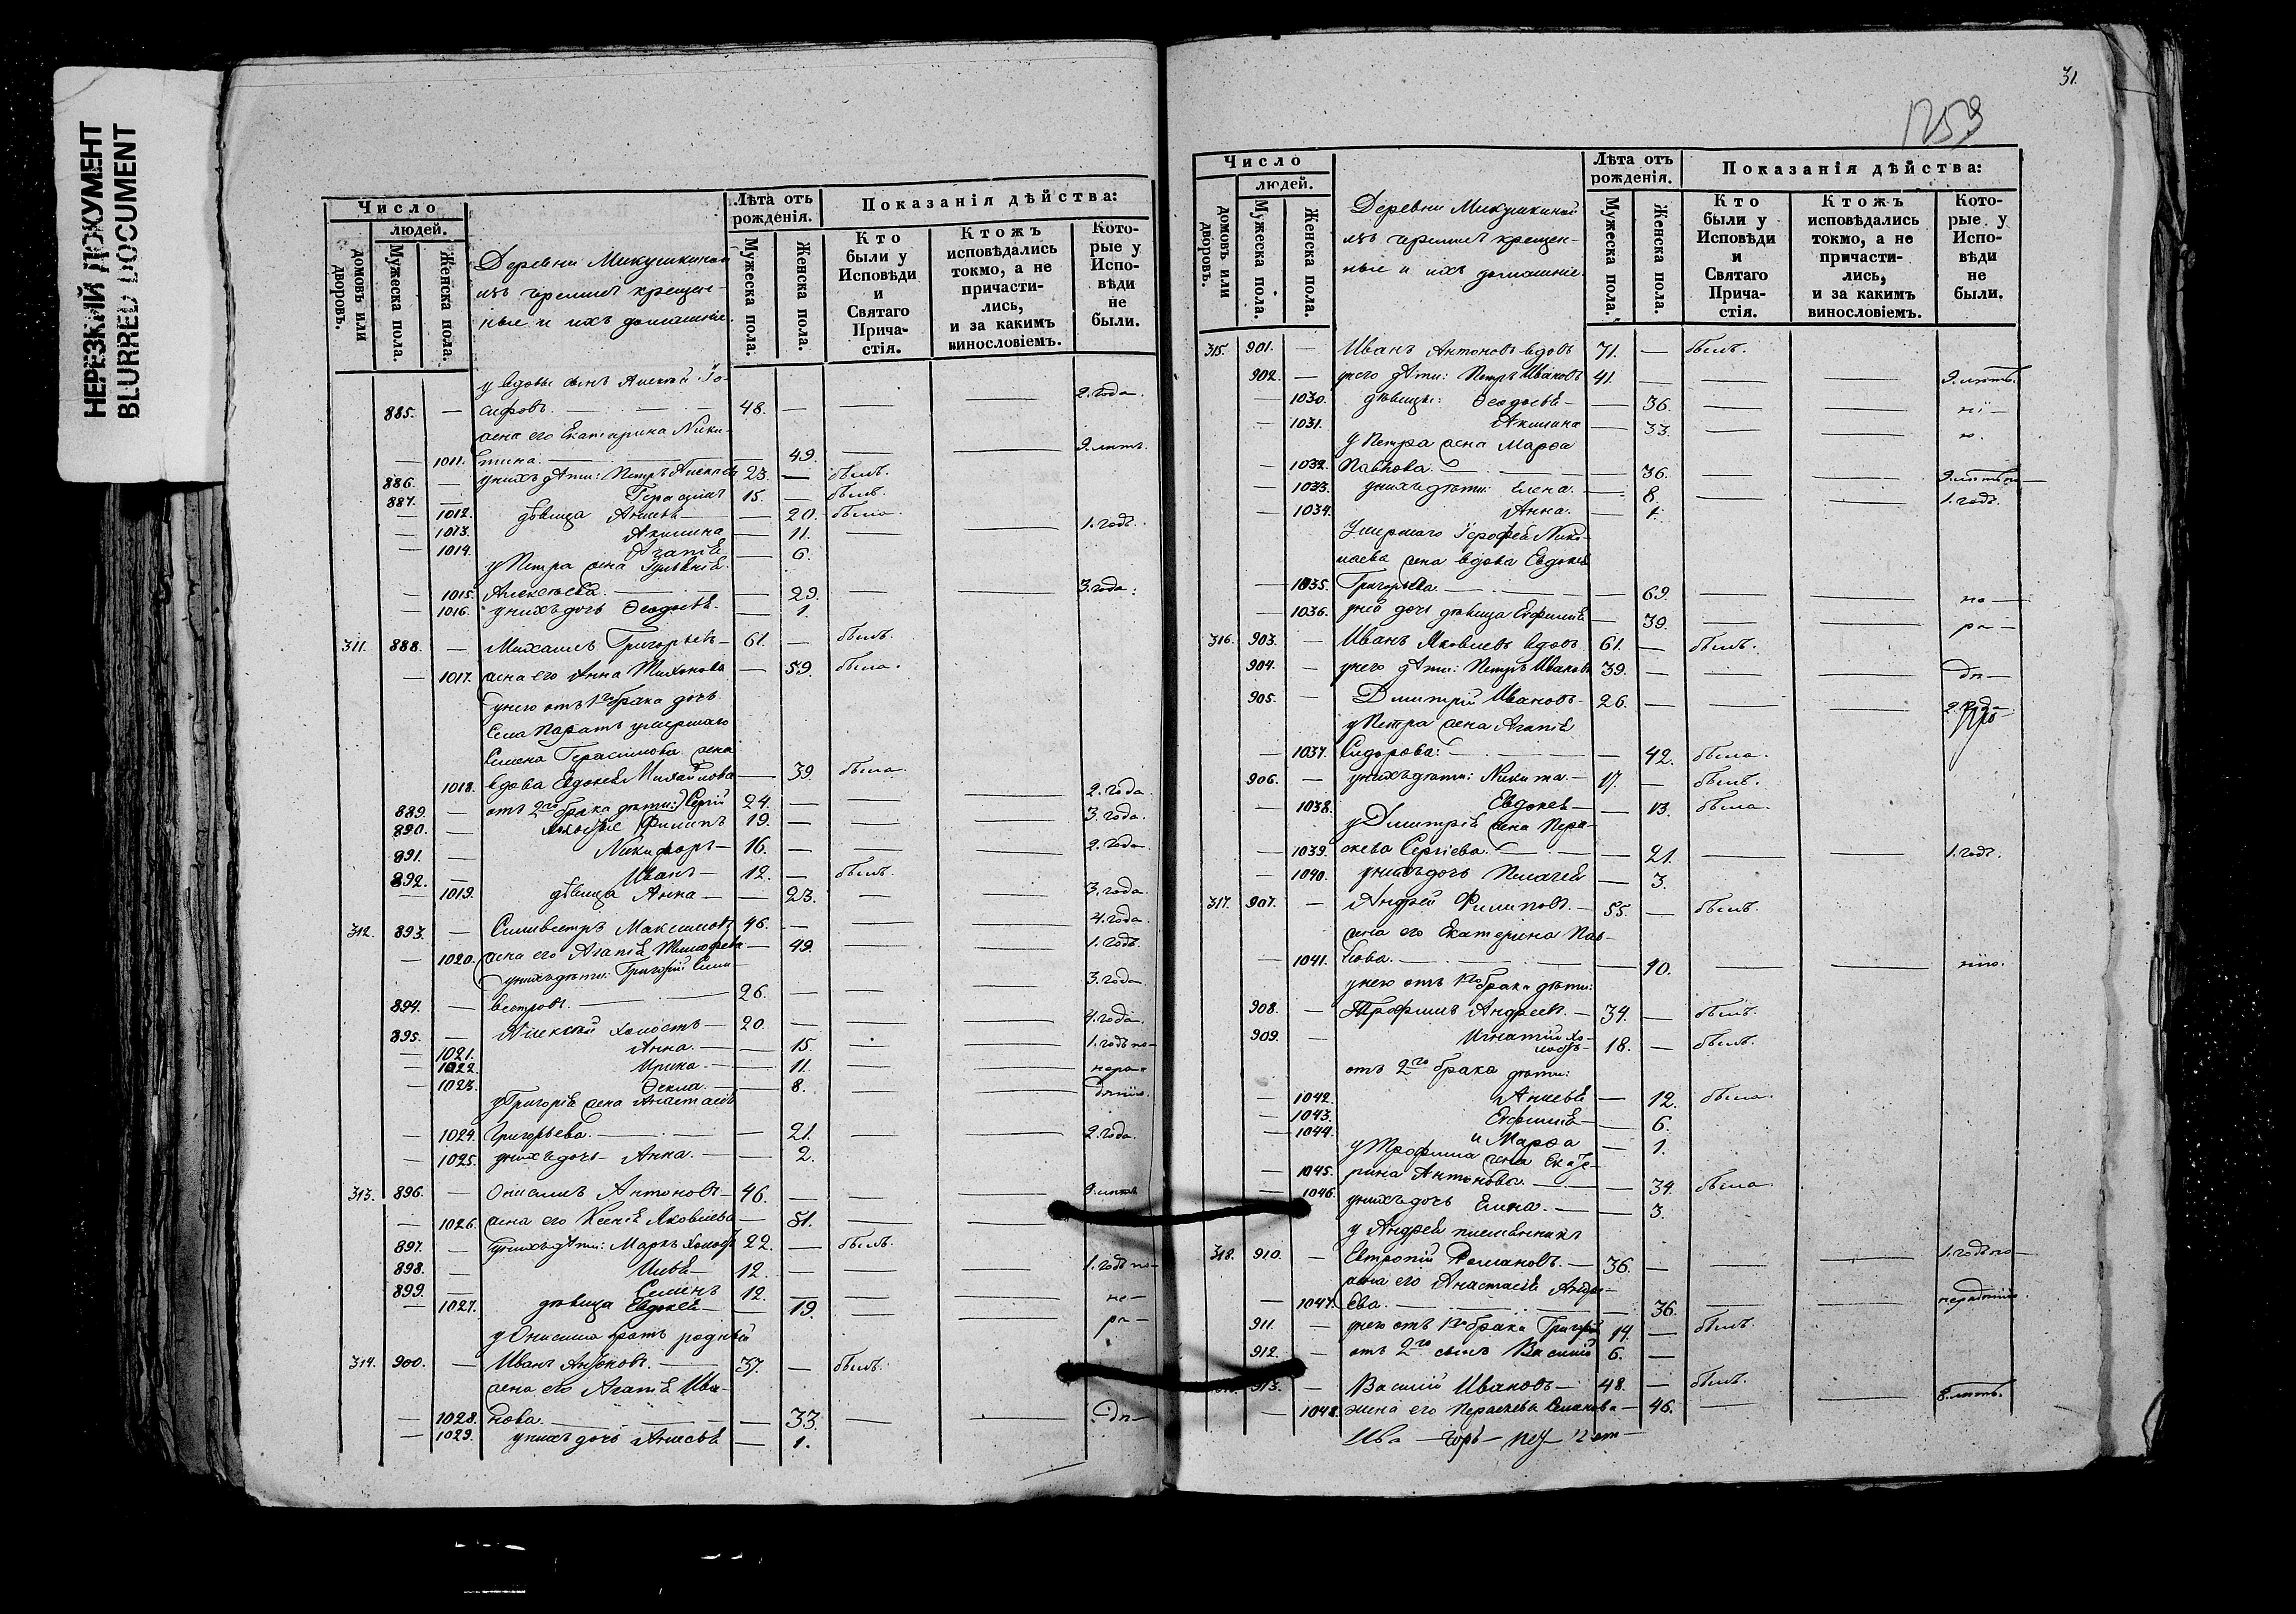 НЕРЕЗКИЙ ДОКУМЕНТ
BLURRED DOCUMENT
Число
людей.
домовъ или дворовъ.
Мужеска пола.
Женска пола.
Деревни Микушкиной
изъ черемисъ крещен-
ные и ихъ домашніе.
Лѣта отъ рожденія.
Мужеска пола.
Женска пола.
Показанія дѣйства:
Кто были у Исповѣди и Святаго Прича-стія.
Ктожъ исповѣдались токмо, а не причасти-лись, и за какимъ винословіемъ.
Кото-рые у Испо-вѣди не были.
у вдовы сынъ Алексѣй Іо-
885. — сифовъ. 48. — 2. года.
жена его Екатерина Ники-
— 1011. тина. — 49. 9. лѣтъ.
886. — у нихъ дѣти: Петръ Алексѣевъ 23. — былъ.
887. — Герасимъ 15. — былъ.
— 1012. дѣвица Анисья — 20. была.
— 1013. Акилина — 11. — 1. годъ.
— 1014. Агапія — 6.
у Петра жена Іуліанія
— 1015. Алексѣева. — 29. 3. года.
— 1016. у нихъ дочь Ѳеодосья. — 1.
311. 888. — Михаилъ Григорьевъ 61. — былъ.
— 1017. жена его Анна Тихонова — 59. была.
у него отъ 1го брака дочь
Села Паратъ умершаго
Семена Герасимова жена
1018. вдова Евдокія Михайлова — 39. была.
889. — отъ 2го брака дѣти: Сергій 24. — 2. года.
890. — холостые Филипъ 19. — 3. года.
891. — Никифоръ 16. — 2. года.
892. — Иванъ 12. — былъ.
— 1019. дѣвица Анна — 23. — 3. года.
312. 893. — Силивестръ Максимовъ 46. — 4. года.
— 1020. жена его Агапія Тимофеева — 49. 1. годъ.
у нихъ дѣти: Григорій Сили-
894. — вестровъ. 26. — 3. года.
895. — Алексѣй холостъ 20. — 4. года.
— 1021. Анна. — 15. 1. годъ по-
— 1022. Ирина. — 11. — нера-
— 1023. Ѳекла. — 8. — дѣнію.
у Григорія жена Анастасія
— 1024. Григорьева. — 21. 2. года.
— 1025. у нихъ дочь Анна. — 2.
313. 896. — Онисимъ Антоновъ 46. — 9. лѣтъ
— 1026. жена его Ксенія Яковлева — 51.
897. — у нихъ дѣти: Маркъ холостъ 22. — былъ.
898. — Илья 12. — 1. годъ по-
899. — Семенъ 12. — не-
— 1027. дѣвица Евдокія — 19. ра-
у Онисима братъ родный
314. 900. — Иванъ Антоновъ. 37. — былъ.
жена его Агапія Ива-
— 1028. нова. — 33. дѣ-
— 1029. у нихъ дочь Анисья — 1.
31.
1259
Число
людей.
домовъ или дворовъ.
Мужеска пола.
Женска пола.
Деревни Микушкиной
изъ черемисъ крещен-
ные и ихъ домашніе.
Лѣта отъ рожденія.
Мужеска пола.
Женска пола.
Показанія дѣйства:
Кто были у Исповѣди и Святаго Прича-стія.
Ктожъ исповѣдались токмо, а не причасти-лись, и за какимъ винословіемъ.
Кото-рые у Испо-вѣди не были.
315. 901. — Иванъ Антоновъ вдовъ 71. — былъ.
902. — у него дѣти: Петръ Ивановъ 41. — 9. лѣтъ.
— 1030. дѣвицы: Ѳеодосья — 36. ні-
— 1031. Акилина — 33. ю.
у Петра жена Марѳа
— 1032. Павлова. — 36. 9. лѣтъ по-
— 1033. у нихъ дѣти: Елена. — 8. 1. годъ.
— 1034. Анна. — 1.
Умершаго Іерофея Нико-
лаева жена вдова Евдокія
— 1035. Григорьева. — 69. не-
— 1036. у ней дочь дѣвица Евфимія — 39. ра-
316. 903. — Иванъ Яковлевъ вдовъ 61. — былъ.
904. — у него дѣти: Петръ Ивановъ 39. — дѣ-
905. — Дмитрій Ивановъ 26. — 2. года
у Петра жена Агапія
— 1037. Сидорова. — 42. была.
906. — у нихъ дѣти: Никита 17. — былъ.
— 1038. Евдокія — 13. была.
у Димитрія жена Пера-
— 1039. скева Сергіева. — 21. 1. годъ.
— 1040. у нихъ дочь Пелагея — 3.
317. 907. — Андрей Филиповъ. 55. — былъ.
жена его Екатерина Пав-
— 1041. лова. — 40. нію.
у него отъ 1го брака дѣти:
908. — Трофимъ Андреевъ. 34. — былъ.
909. — Игнатій хо-
лостъ 18. — былъ.
отъ 2го брака дѣти:
— 1042. Анисья — 12. была.
— 1043. Евфимія — 6.
— 1044. и Марѳа — 1.
у Трофима жена Екате-
— 1045. рина Антонова. — 34. была
— 1046. у нихъ дочь Елена. — 3.
у Андрея племянникъ
318. 910. — Евтропій Романовъ. 36. — 1. годъ по-
жена его Анастасія Андре-
— 1047. ева. — 36. нерадѣнію.
911. — у него отъ 1го брака Григорій 14. — былъ.
912. — отъ 2го сынъ Василій 6. —
913. — Василій Ивановъ 48. — былъ.
— 1048. жена его Параскева Семенова — 46. 8. лѣтъ.